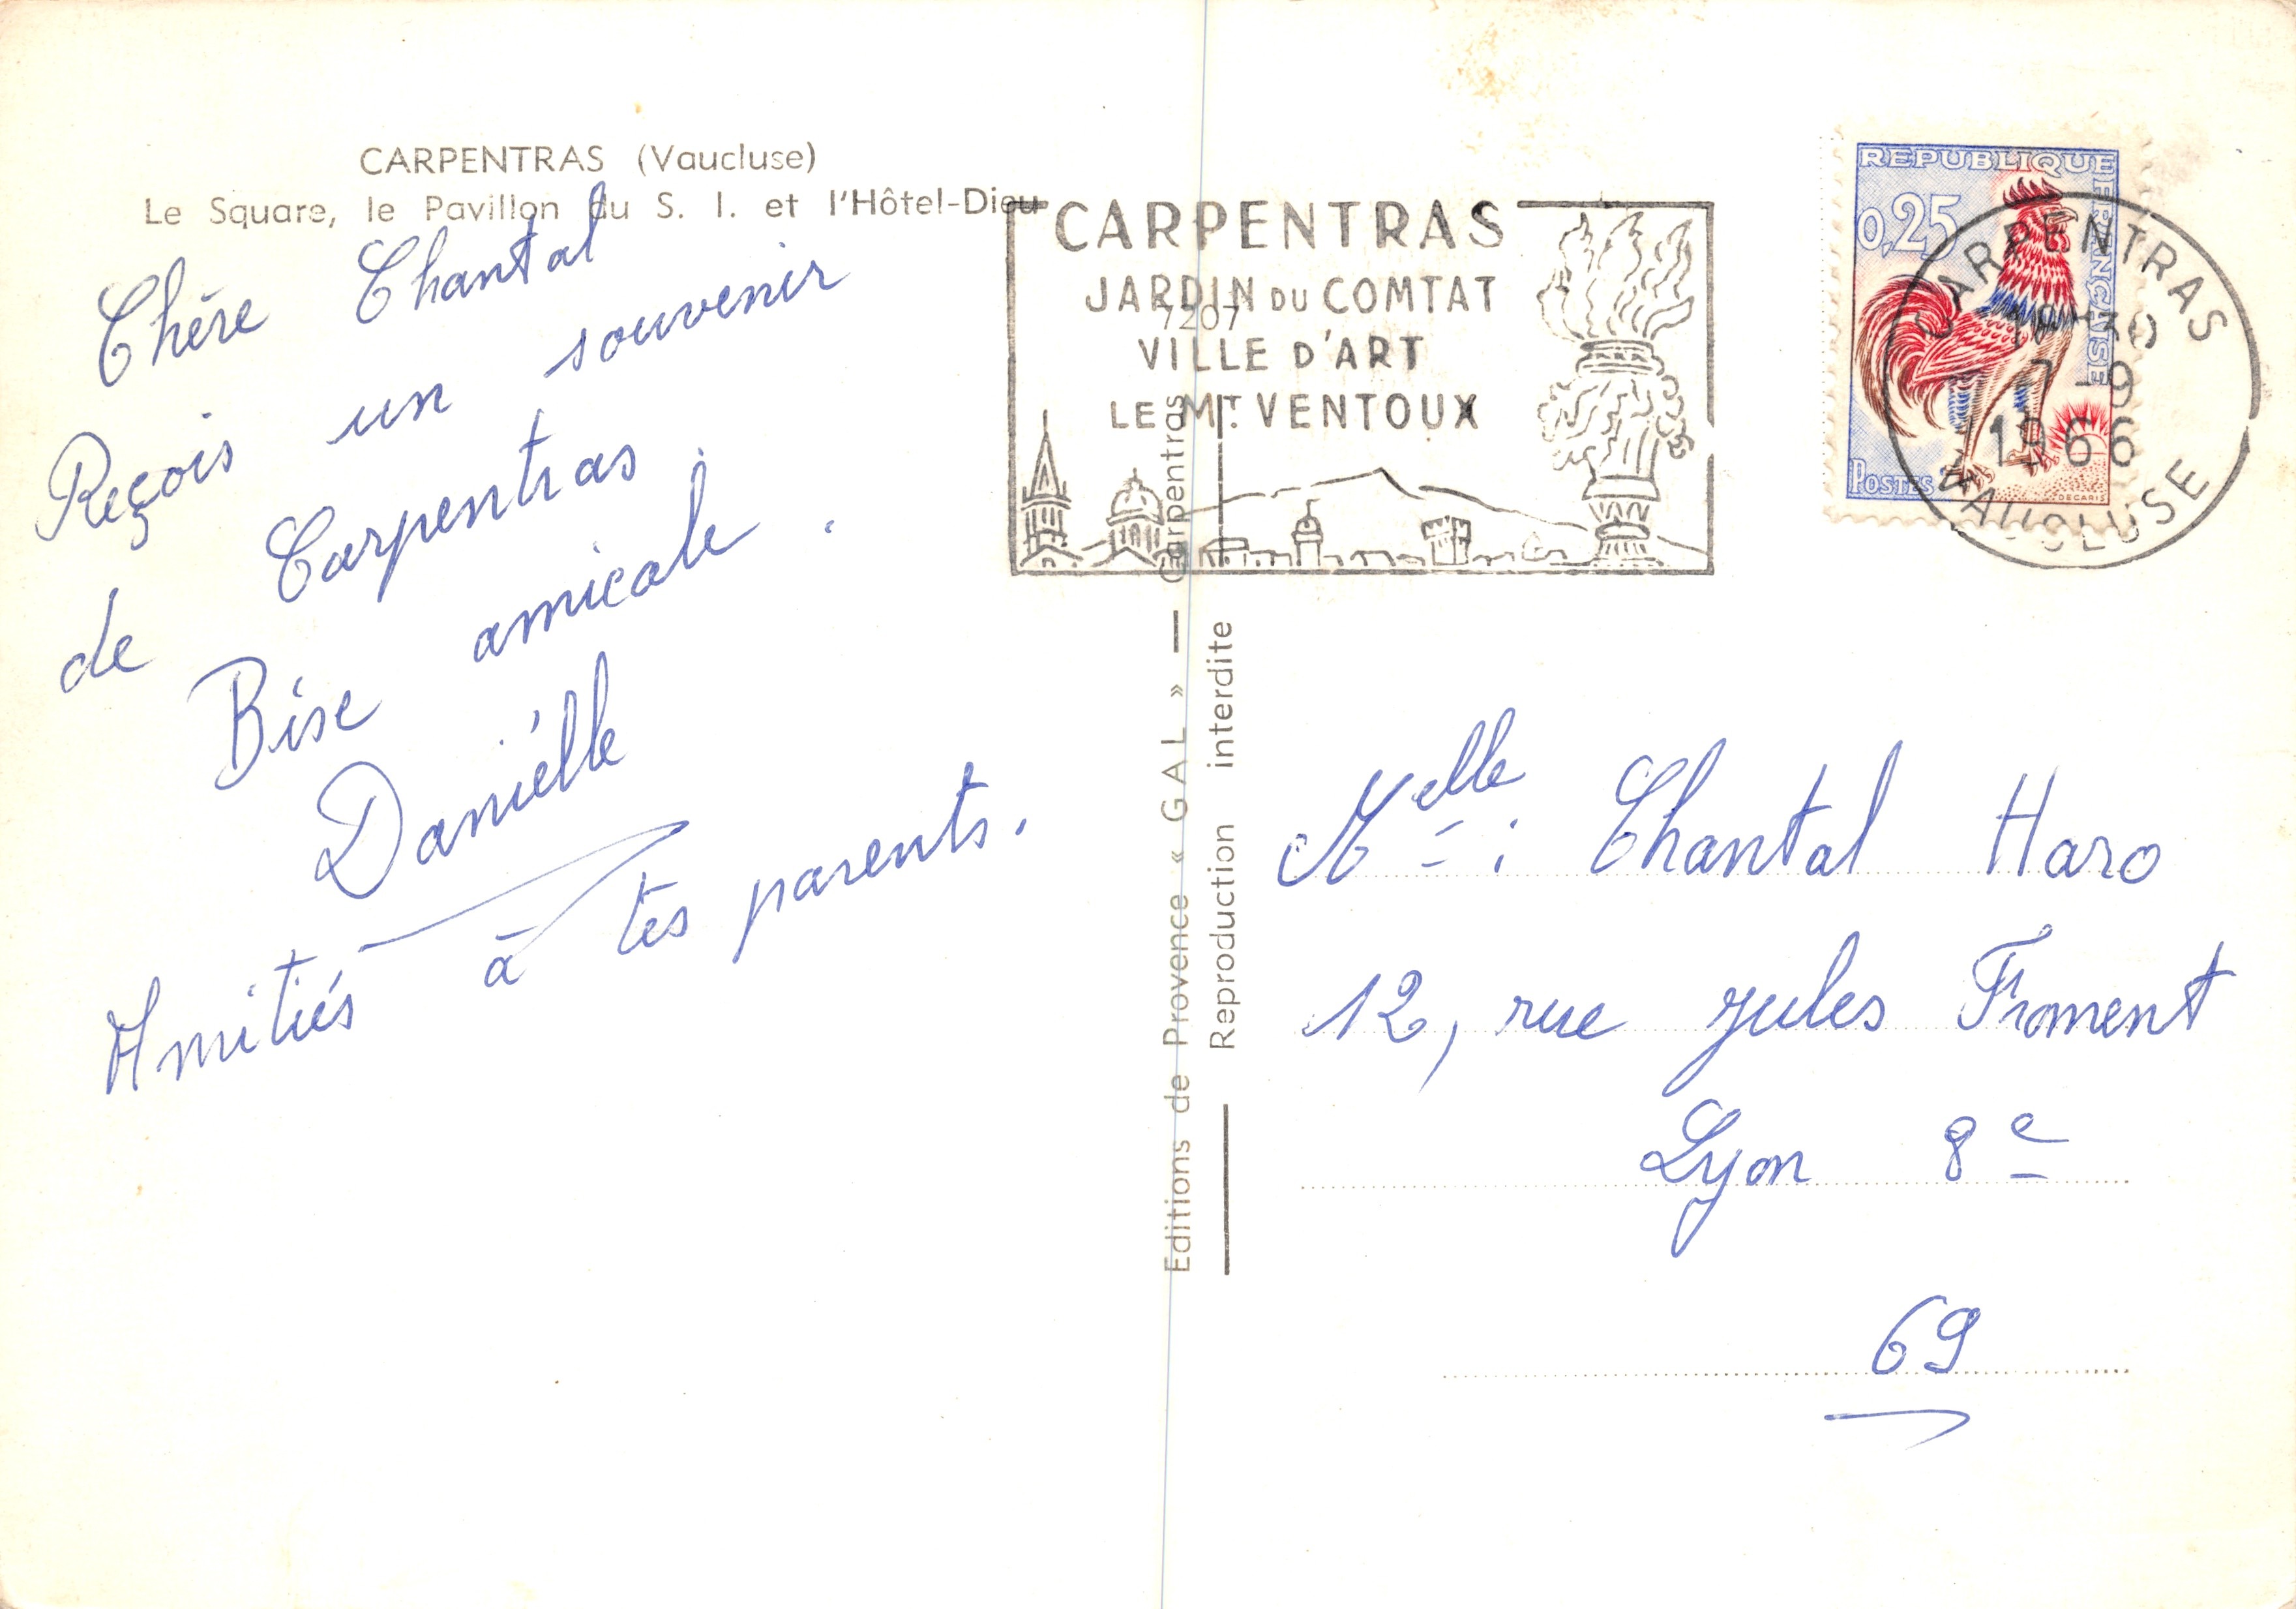 CARPENTRAS (Vaucluse)
Le Square, le Pavillon du S. I. et l'Hôtel-Dieu
Chère Chantal
Reçois un souvenir
de Carpentras.
Bise amicale.
Daniélle
Amitiés à tes parents.
CARPENTRAS
JARDIN DU COMTAT
7207
VILLE D'ART
LE MT. VENTOUX
Editions de Provence « GAL » — Carpentras
Reproduction interdite
REPUBLIQUE FRANÇAISE
0,25
POSTES
DECARIS
CARPENTRAS
7-9
1966
VAUCLUSE
Melle : Chantal Haro
12, rue Jules Froment
Lyon 8e
69